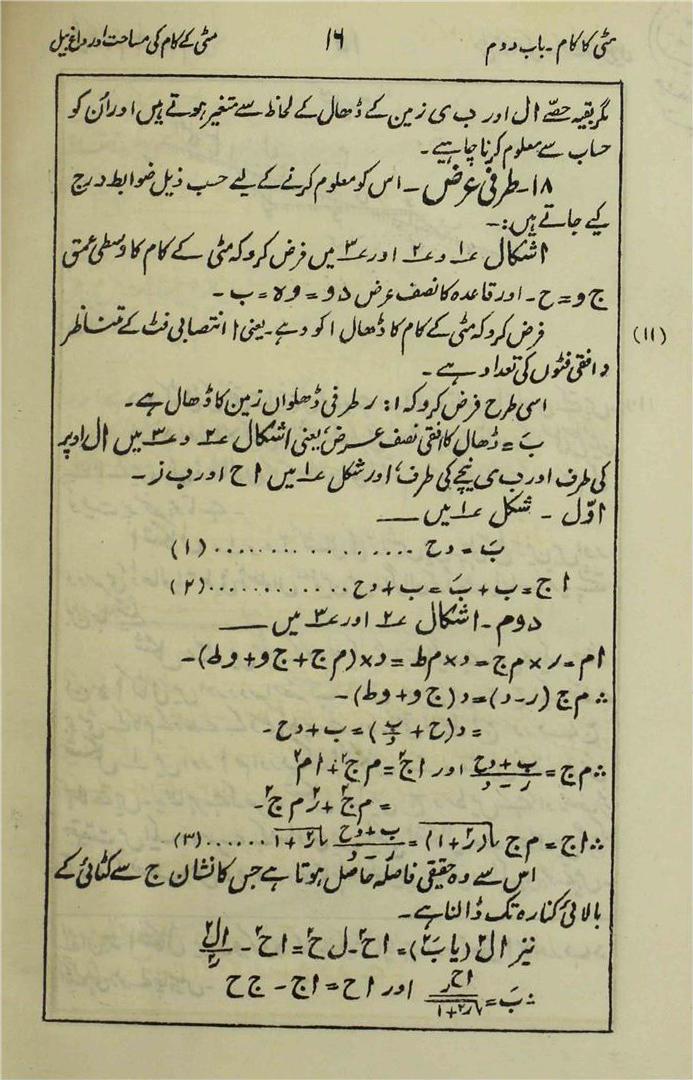 مٹی کا کام۔ باب دوم ۱۶ مٹی کے کام کی مساحت اور داغ بیل
مگر بقیہ حصّے ا ل اور ب ی زمین کے ڈھال کے لحاظ سے متغیر ہوتے ہیں اور اُن کو
حساب سے معلوم کرنا چاہیے۔
۱۸۔ طرفی عرض۔ اس کو معلوم کرنے کے لیے حسب ذیل ضوابط درج
کیے جاتے ہیں:۔
اشکال ؏۱ و ؏۲ اور ؏۳ میں فرض کرو کہ مٹی کے کام کا وسطی عمق
ج و = ح۔ اور قاعدہ کا نصف عرض د و = و ہ = ب۔
فرض کرو کہ مٹی کے کام کا ڈھال ا کو د ہے۔ یعنی ا انتصابی فٹ کے متناظر (۱۱)
د افقی فٹوں کی تعداد ہے۔
اسی طرح فرض کرو کہ ۱: ر طرفی ڈھلواں زمین کا ڈھال ہے۔
بَ = ڈھال کا افقی نصف عرض، یعنی اشکال ؏۲ و ؏۳ میں ا ل اوپر
کی طرف اور ب ی نیچے کی طرف، اور شکل ؏۱ میں ا ح اور ب ز۔
اوّل۔ شکل ؏۱ میں ــــ
بَ = دح ................ (۱)
ا ج = ب + بَ = ب + دح ............ (۲)
دوم۔ اشکال ؏۲ اور ؏۳ میں ــــ
ام = ر × م ج = د × م ط = د × (م ج + ج و + و ط)۔
∴ م ج (ر - د) = د (ج و + و ط)۔
= د (ح + ب/د) = ب + دح۔
∴ م ج = (ب + دح)/(ر - د) اور اج۲ = م ج۲ + ام۲
= م ج۲ + ر۲ م ج۲۔
∴ اج = م ج √(ر۲+۱) = (ب + دح)/(ر - د) √(ر۲+۱) ...... (۳)
اس سے وہ حقیقی فاصلہ حاصل ہوتا ہے جس کا نشان ج سے کٹائی کے
بالائی کنارہ تک ڈالنا ہے۔
نیز ال۲ (یا بَ۲) = اح۲ - ل ح۲ = اح۲ - ال۲/ر۲
∴ بَ = اح ر/√(ر۲+۱) اور اح = اج - ج ح